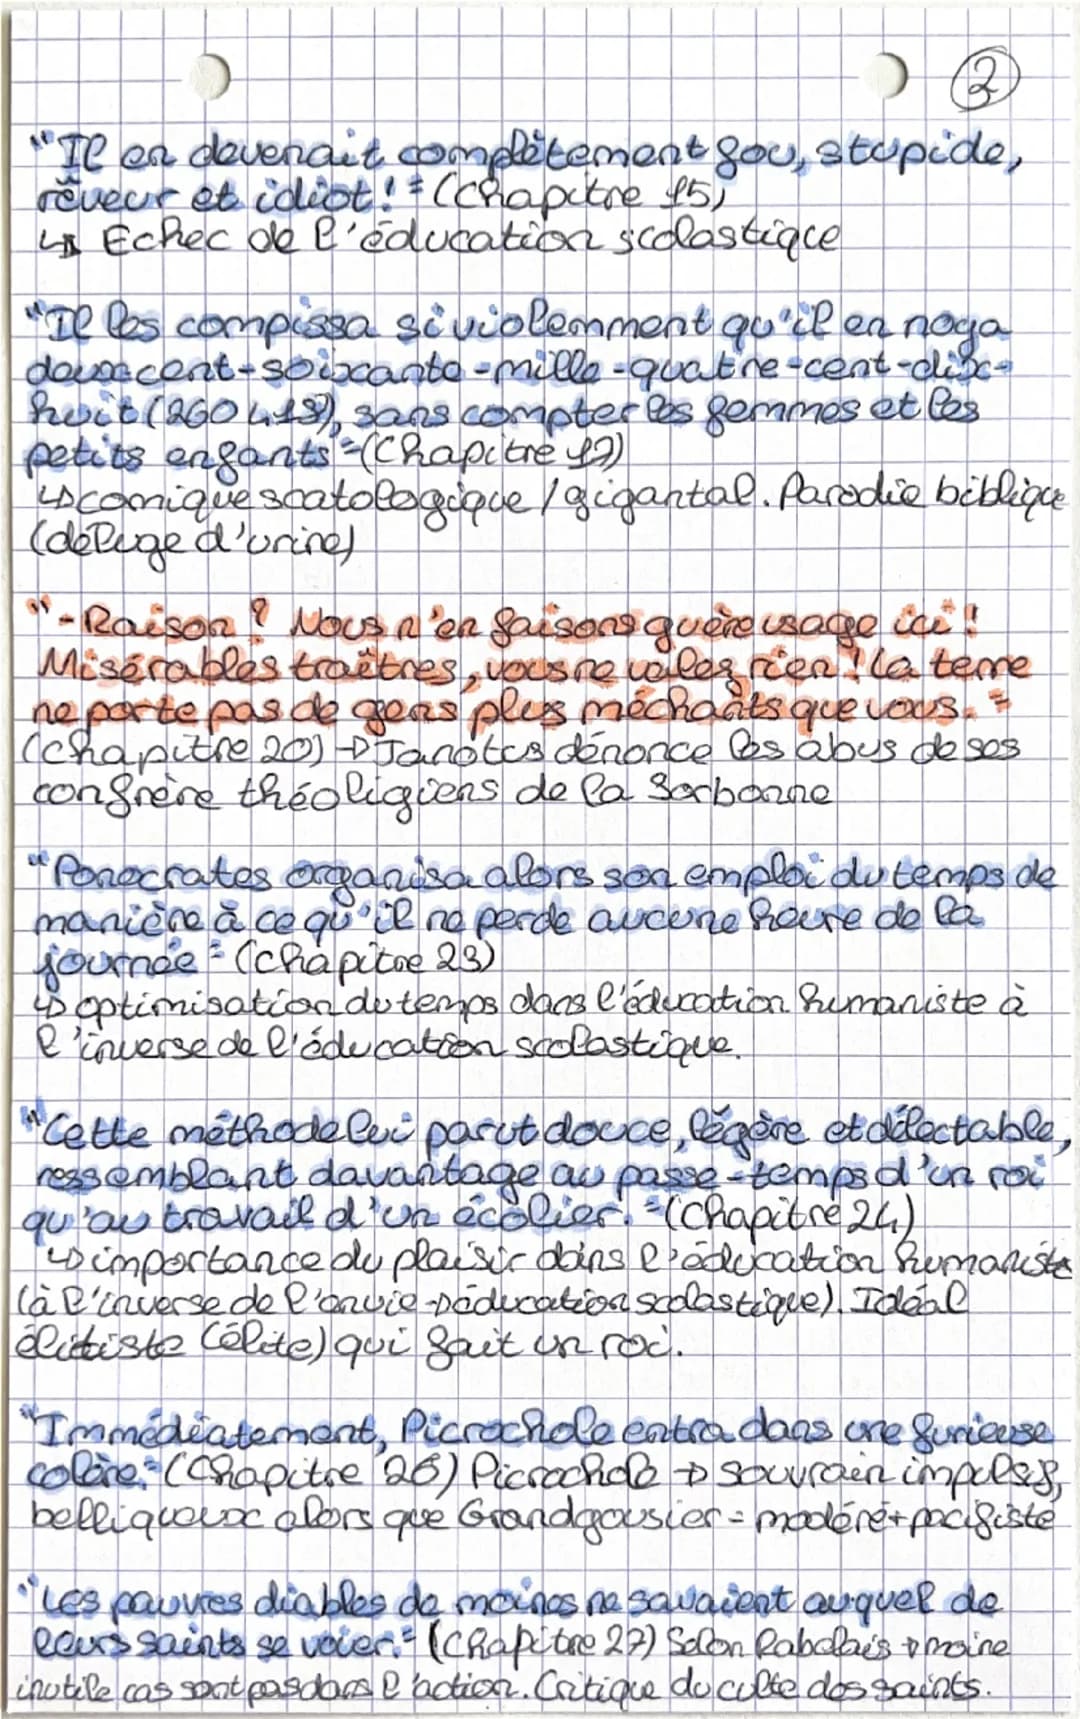 2
"Il en devenait complètement fou, stupide,
rêveur et idiot!" (Chapitre 15)
↳ Echec de l'éducation scolastique
"Il les compissa si violemment qu'il en noya
deux cent-soixante-mille-quatre-cent-dix-
huit (260 418), sans compter les femmes et les
petits enfants" (Chapitre 17)
↳ comique scatologique / gigantal. Parodie biblique
(déluge d'urine)
"- Raison ? Nous n'en faisons guère usage ici !
Misérables traîtres, vous ne valez rien ! la terre
ne porte pas de gens plus méchants que vous."
(Chapitre 20) → Janotus dénonce les abus de ses
confrère théoligiens de la Sorbonne
"Ponocrates organisa alors son emploi du temps de
manière à ce qu'il ne perde aucune heure de la
journée" (Chapitre 23)
↳ optimisation du temps dans l'éducation humaniste à
l'inverse de l'éducation scolastique.
"Cette méthode lui parut douce, légère et délectable,
ressemblant davantage au passe-temps d'un roi
qu'au travail d'un écolier." (Chapitre 24)
↳ importance du plaisir dans l'éducation humaniste
(à l'inverse de l'envie → éducation scolastique). Idéal
élitiste (élite) qui fait un roi.
"Immédiatement, Picrochole entra dans une furieuse
colère." (Chapitre 26) Picrochole → souvrain impulsif,
belliqueux alors que Grandgousier = modéré + pacifiste
"Les pauvres diables de moines ne savaient auquel de
leurs saints se voier." (Chapitre 27) Selon Rabelais → moine
inutile cas sont pas dans l'action. Critique du culte des saints.